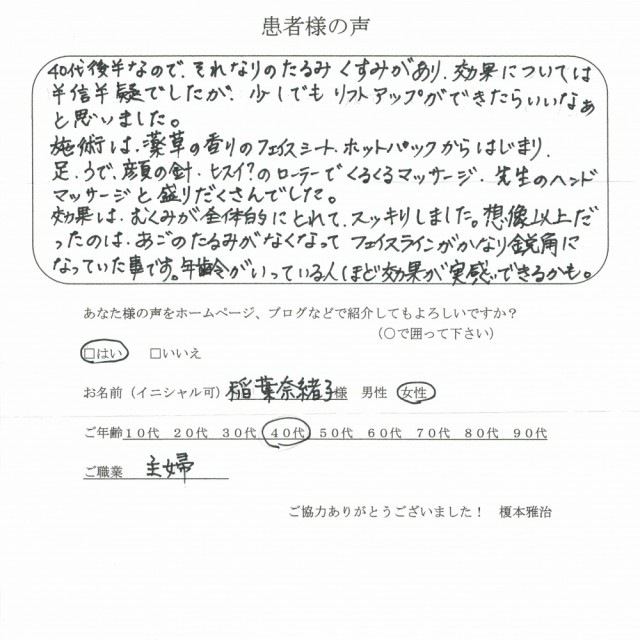 患者様の声
40代後半なので、それなりのたるみくすみがあり、効果については
半信半疑でしたが、少しでもリフトアップができたらいいなぁ
と思いました。
施術は、薬草の香りのフェイスシート、ホットパックからはじまり、
足、うで、顔の針、ヒスイ?のローラーでくるくるマッサージ、先生のハンド
マッサージと盛りだくさんでした。
効果は、むくみが全体的にとれて、スッキリしました。想像以上だ
ったのは、あごのたるみがなくなって フェイスラインがかなり鋭角に
なっていた事です。年齢がいっている人ほど効果が実感できるかも。
あなた様の声をホームページ、ブログなどで紹介してもよろしいですか?
(○で囲って下さい)
□はい □いいえ
お名前(イニシャル可)稲葉奈緒子様 男性 女性
ご年齢10代 20代 30代 40代 50代 60代 70代 80代 90代
ご職業 主婦
ご協力ありがとうございました! 榎本雅治